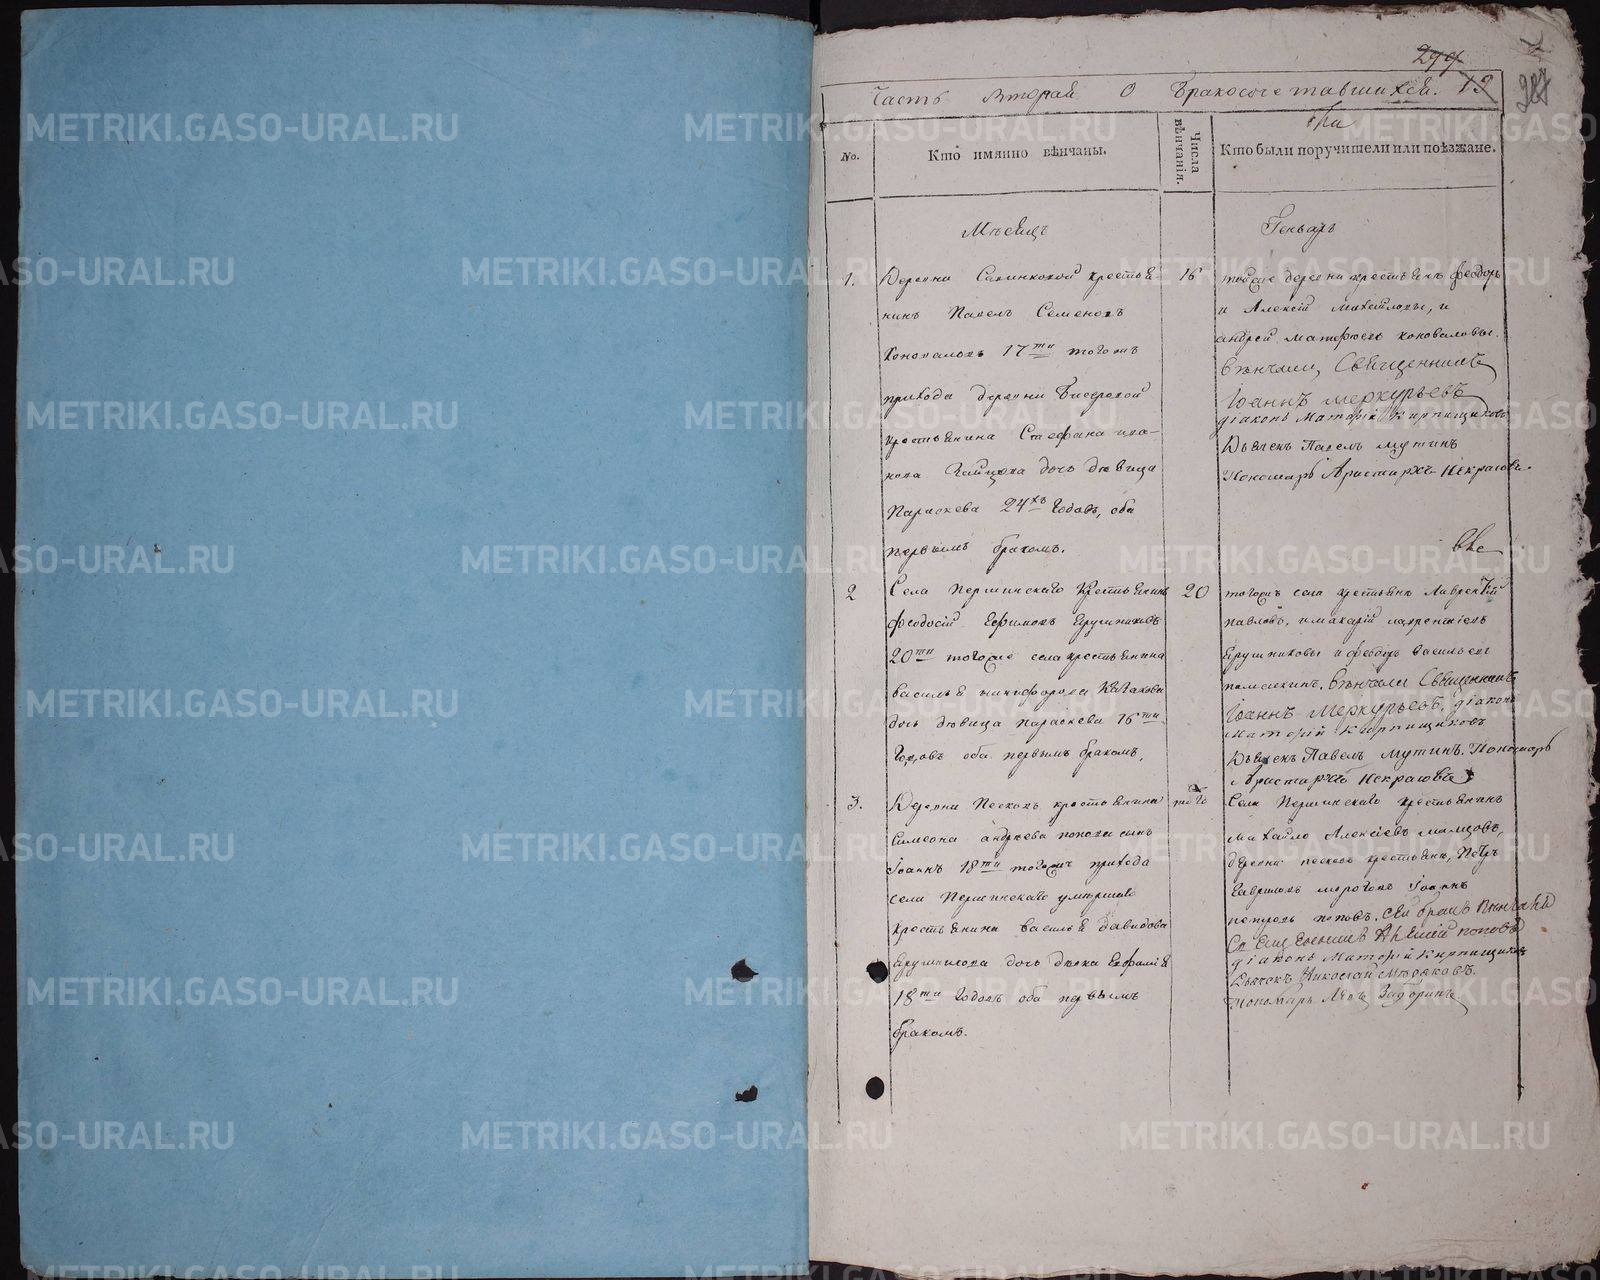 299
Часть вторая О бракосочетавшихся. 13
287
No.
Кто имянно вѣнчаны.
Числа вѣнчанія.
Кто были поручители или поѣзжане.
Мѣсяцъ
Генварь
1.
Деревни крестья
нинъ Павелъ Семеновъ
Коноваловъ 17ти тогожъ
прихода деревни Бисеровой
крестьянина Стефана ива-
нова дочь дѣвица
Параскева 24хъ годовъ, оба
первымъ бракомъ.
16
тоясже деревни крестьянъ Феодоръ
и Алексій Михайловы, и
андрей матфеевъ коноваловы.
Вѣнчали, Священникъ
Іоаннъ Меркурьевъ
діаконъ Маторій Кирпищиковъ
Дьячекъ Павелъ Мутинъ
Пономарь Аристархъ Некрасовъ.
2
Села Першинскаго Крестьянинъ
Феодосій Ефимовъ Ерушниковъ
20ти тогоже села крестьянина
Василья никифорова Казакова
дочь дѣвица параскева 16ти
Годовъ оба первымъ бракомъ.
20
тогожъ села крестьянъ Лаврентій
павловъ, имакарій лаврентіевъ
Ерушниковы и феодоръ васильевъ
Вѣнчали Священникъ
Іоаннъ Меркурьевъ. діаконъ
Маторій Кирпищиковъ
Дьячекъ Павелъ Мутинъ. Пономарь
Аристархъ Некрасовъ
3.
Деревни Песковъ крестьянина
Симеона андреева попова сынъ
Іоаннъ 18ти тогожъ прихода
села Першинскаго умершаго
крестьянина Василья давидова
Ерушникова дочь дѣвка Евфимія
18ти Годовъ оба первымъ
бракомъ.
того
Села Першинскаго крестьянинъ
Михайло Алексіевъ
деревни песковъ крестьянъ, Петръ
Гавриловъ Іоаннъ
петровъ поповъ. Сей бракъ вѣнчали
Алексій поповъ
діаконъ Маторій Кирпищиковъ
Дьячекъ Николай
Пономарь Левъ Задоринъ.
METRIKI.GASO-URAL.RU